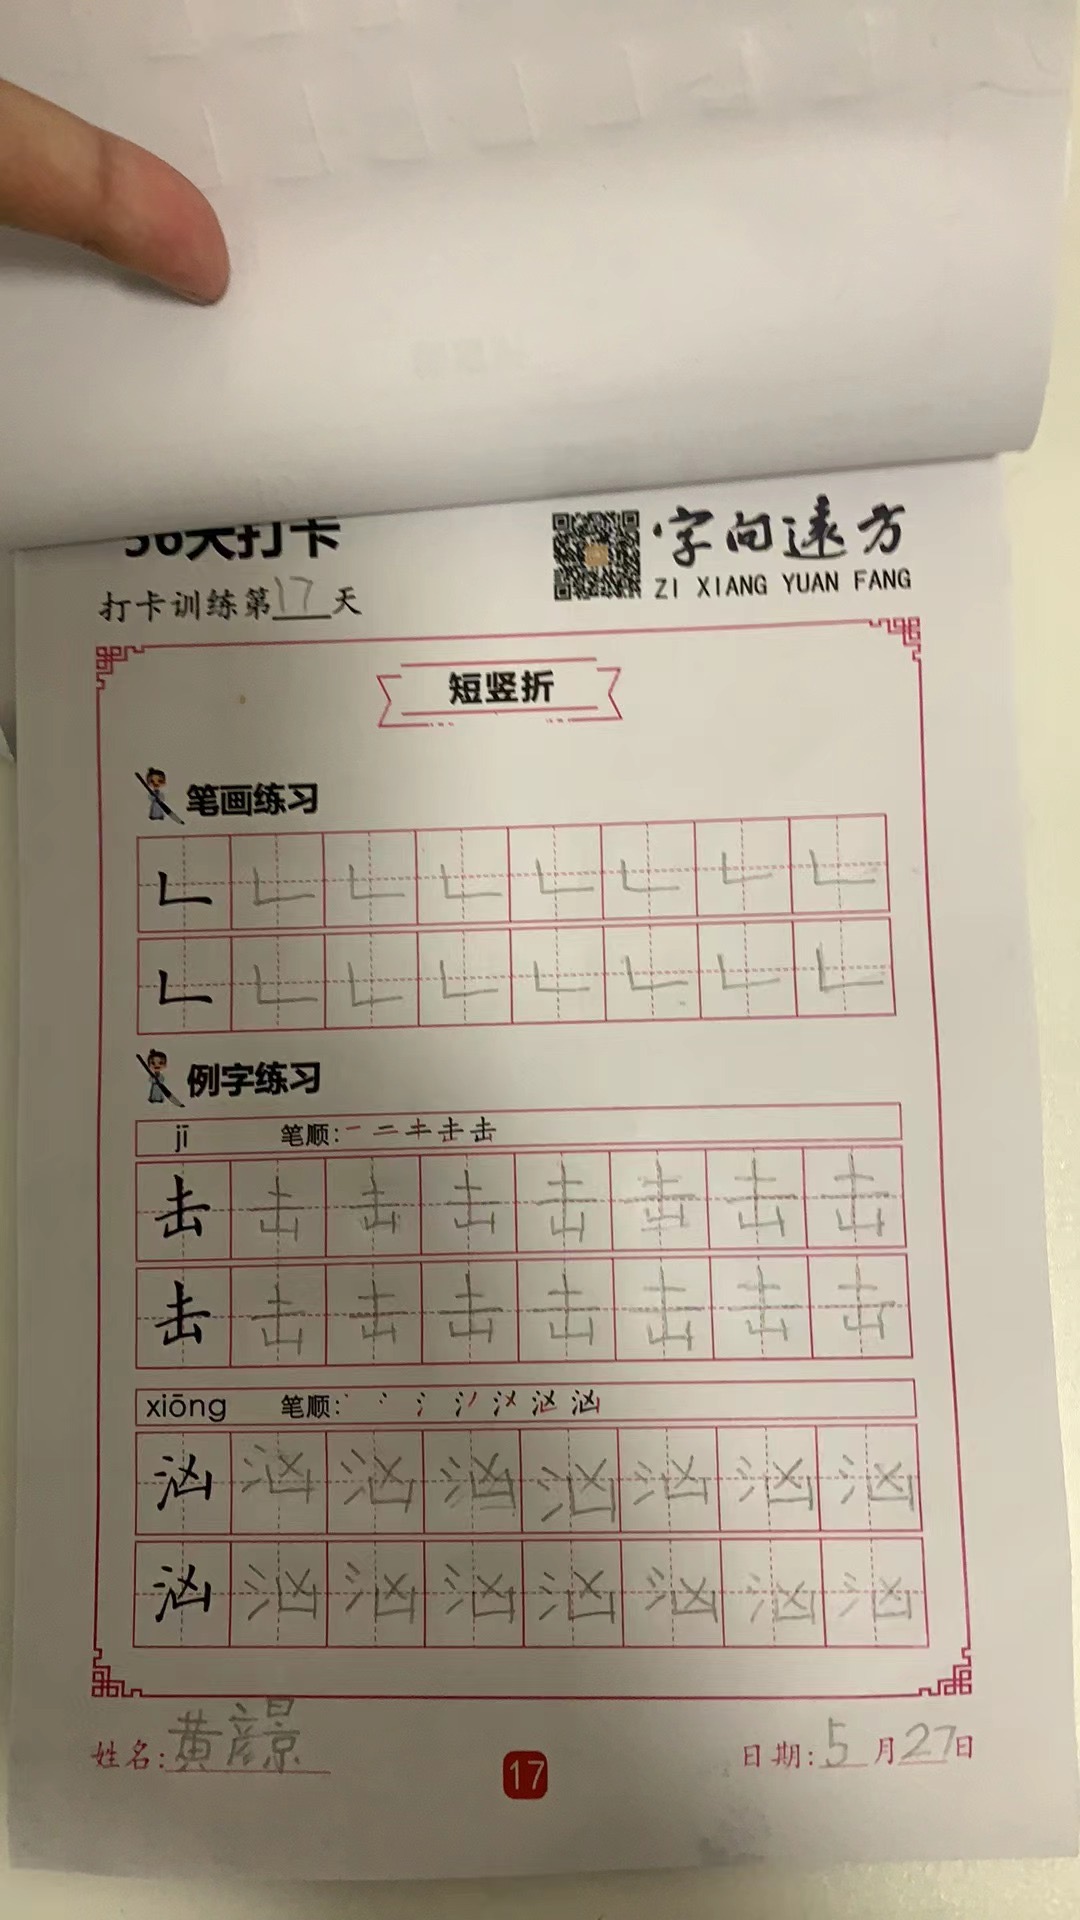 36天打卡
字向遠方
ZI XIANG YUAN FANG
打卡训练第17天
短竖折
笔画练习
𠃊 𠃊 𠃊 𠃊 𠃊 𠃊 𠃊 𠃊
𠃊 𠃊 𠃊 𠃊 𠃊 𠃊 𠃊 𠃊
例字练习
jī 笔顺:
击 击 击 击 击 击 击 击
击 击 击 击 击 击 击 击
xiōng 笔顺:
汹 汹 汹 汹 汹 汹 汹 汹
汹 汹 汹 汹 汹 汹 汹 汹
姓名:黄彦景
17
日期:5月27日